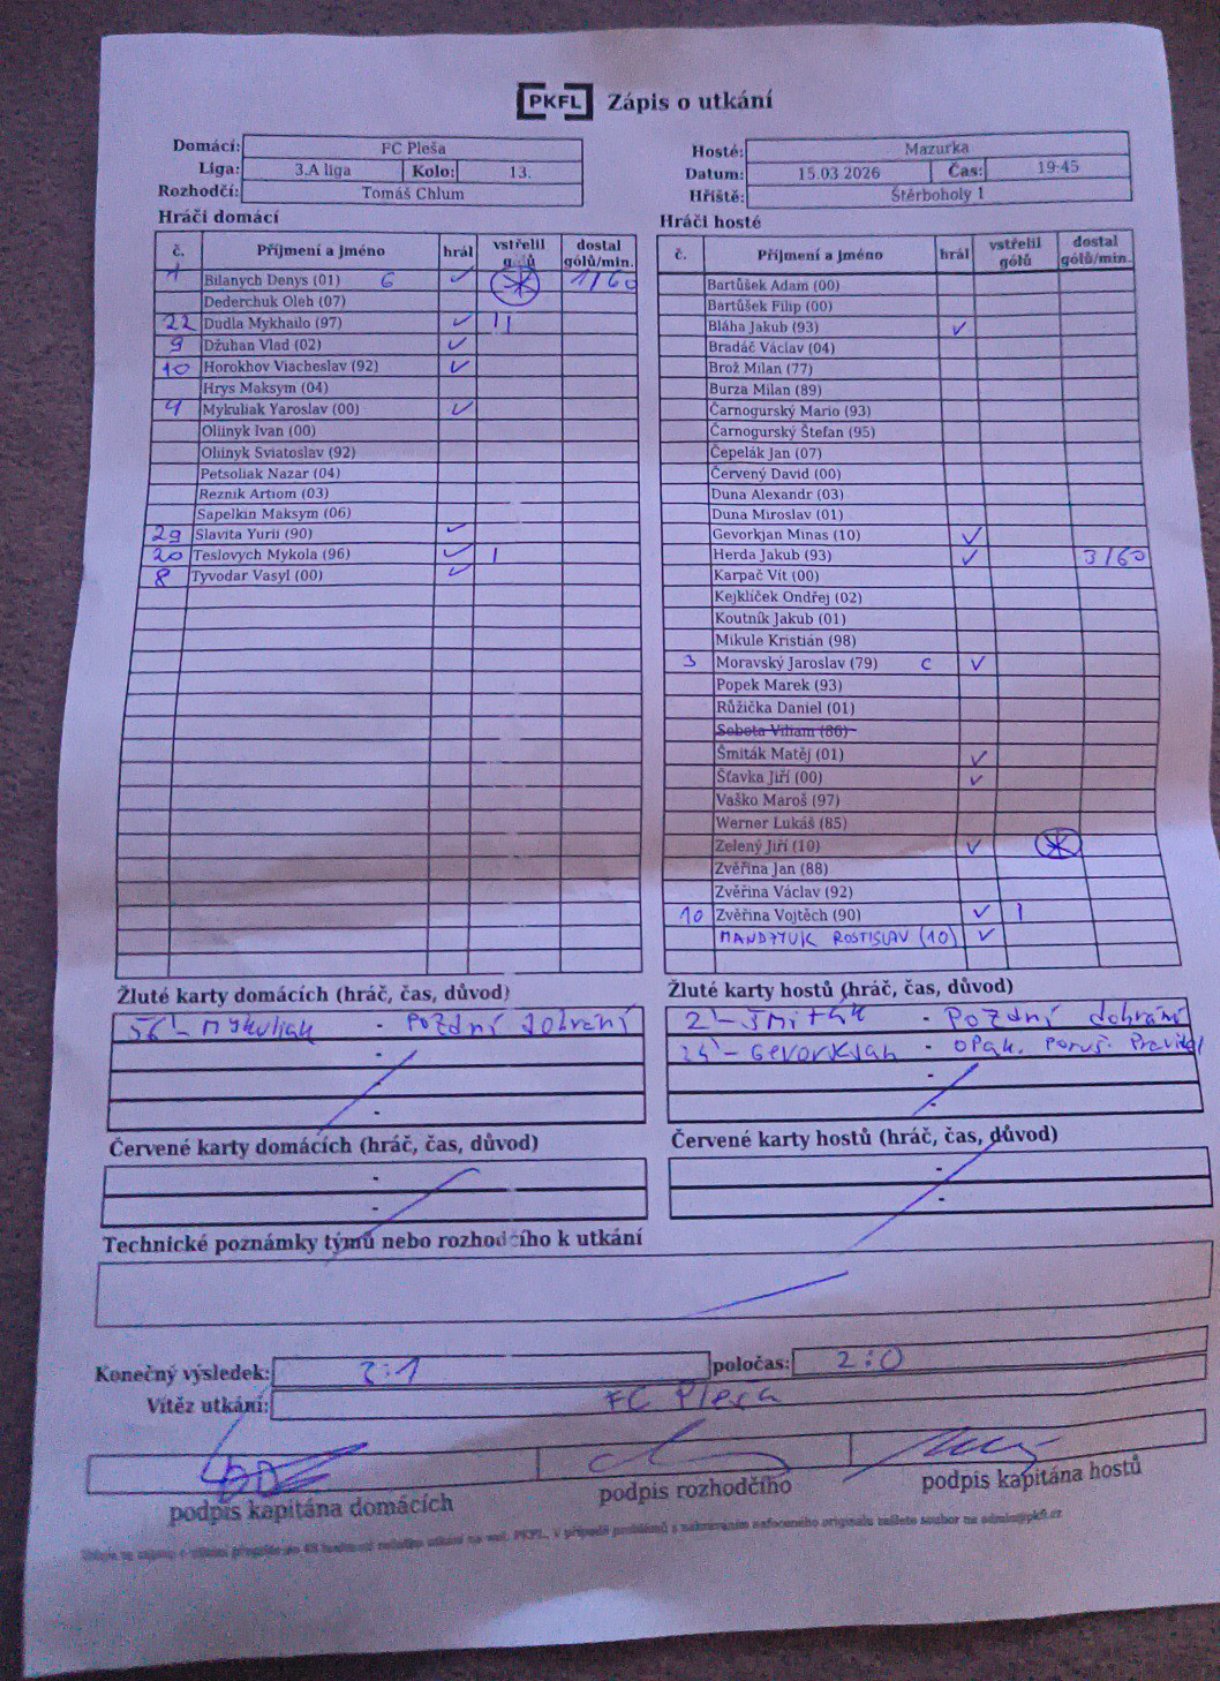 PKFL Zápis o utkání
Domácí: FC Pleša
Liga: 3.A liga Kolo: 13.
Rozhodčí: Tomáš Chlum
Hosté: Mazurka
Datum: 15.03.2026 Čas: 19:45
Hřiště: Štěrboholy 1
Hráči domácí
č. Příjmení a jméno hrál vstřelil gólů dostal gólů/min.
1 Bilanych Denys (01) G ✓ 1/60
Dederchuk Oleh (07)
22 Dudla Mykhailo (97) ✓ 11
9 Džuhan Vlad (02) ✓
10 Horokhov Viacheslav (92) ✓
Hrys Maksym (04)
4 Mykuliak Yaroslav (00) ✓
Oliinyk Ivan (00)
Oliinyk Sviatoslav (92)
Petsoliak Nazar (04)
Reznik Artiom (03)
Sapelkin Maksym (06)
29 Slavita Yurii (90) ✓
20 Teslovych Mykola (96) ✓ 1
8 Tyvodar Vasyl (00) ✓
Hráči hosté
č. Příjmení a jméno hrál vstřelil gólů dostal gólů/min.
Bartůšek Adam (00)
Bartůšek Filip (00)
Bláha Jakub (93) ✓
Bradáč Václav (04)
Brož Milan (77)
Burza Milan (89)
Čarnogurský Mario (93)
Čarnogurský Štefan (95)
Čepelák Jan (07)
Červený David (00)
Duna Alexandr (03)
Duna Miroslav (01)
Gevorkjan Minas (10) ✓
Herda Jakub (93) ✓ 3/60
Karpač Vít (00)
Kejklíček Ondřej (02)
Koutník Jakub (01)
Mikule Kristián (98)
3 Moravský Jaroslav (79) C ✓
Popek Marek (93)
Růžička Daniel (01)
Sobota Viliam (86)
Šmiták Matěj (01) ✓
Šťavka Jiří (00) ✓
Vaško Maroš (97)
Werner Lukáš (85)
Zelený Jiří (10) ✓
Zvěřina Jan (88)
Zvěřina Václav (92)
10 Zvěřina Vojtěch (90) ✓ 1
MANDZYUK ROSTISLAV (10) ✓
Žluté karty domácích (hráč, čas, důvod)
56' - Mykuliak - Pozdní dohrání
Žluté karty hostů (hráč, čas, důvod)
2' - Šmiták - Pozdní dohrání
- Gevorkjan - opak. poruš. Pravidel
Červené karty domácích (hráč, čas, důvod)
Červené karty hostů (hráč, čas, důvod)
Technické poznámky týmů nebo rozhodčího k utkání
Konečný výsledek: 3:1 poločas: 2:0
Vítěz utkání: FC Pleša
podpis kapitána domácích
podpis rozhodčího
podpis kapitána hostů